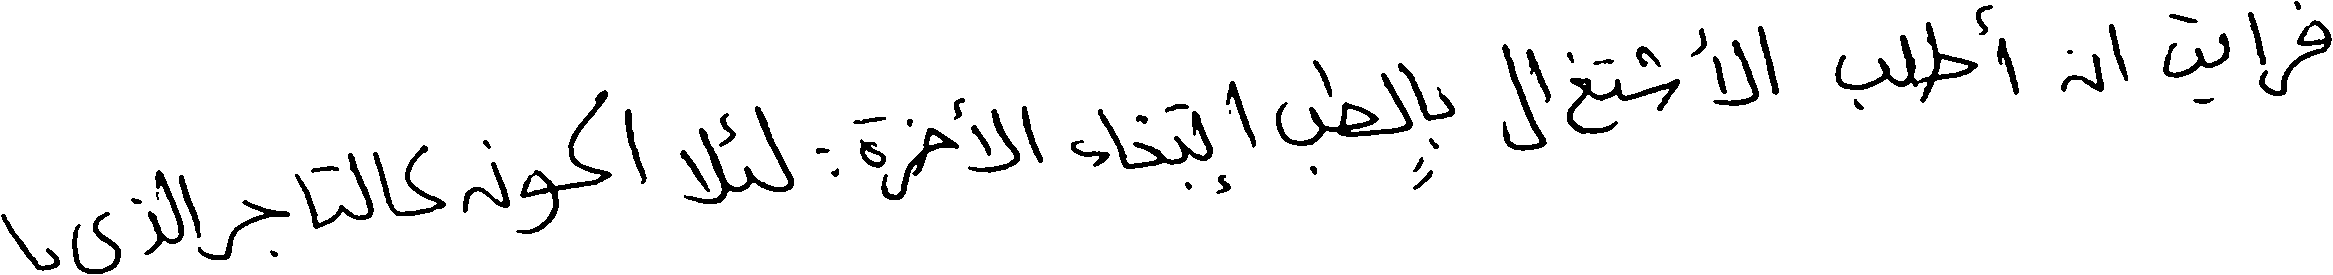 فرايت ان أطلب الأشتغال بإلطب إبتغاء الأخرة: لئلا اكون كالتاجر الذى با